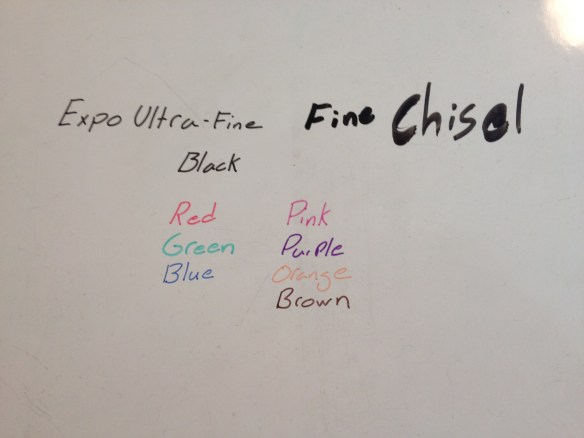 Expo Ultra-Fine Fine Chisel
Black
Red Pink
Green Purple
Blue Orange
Brown